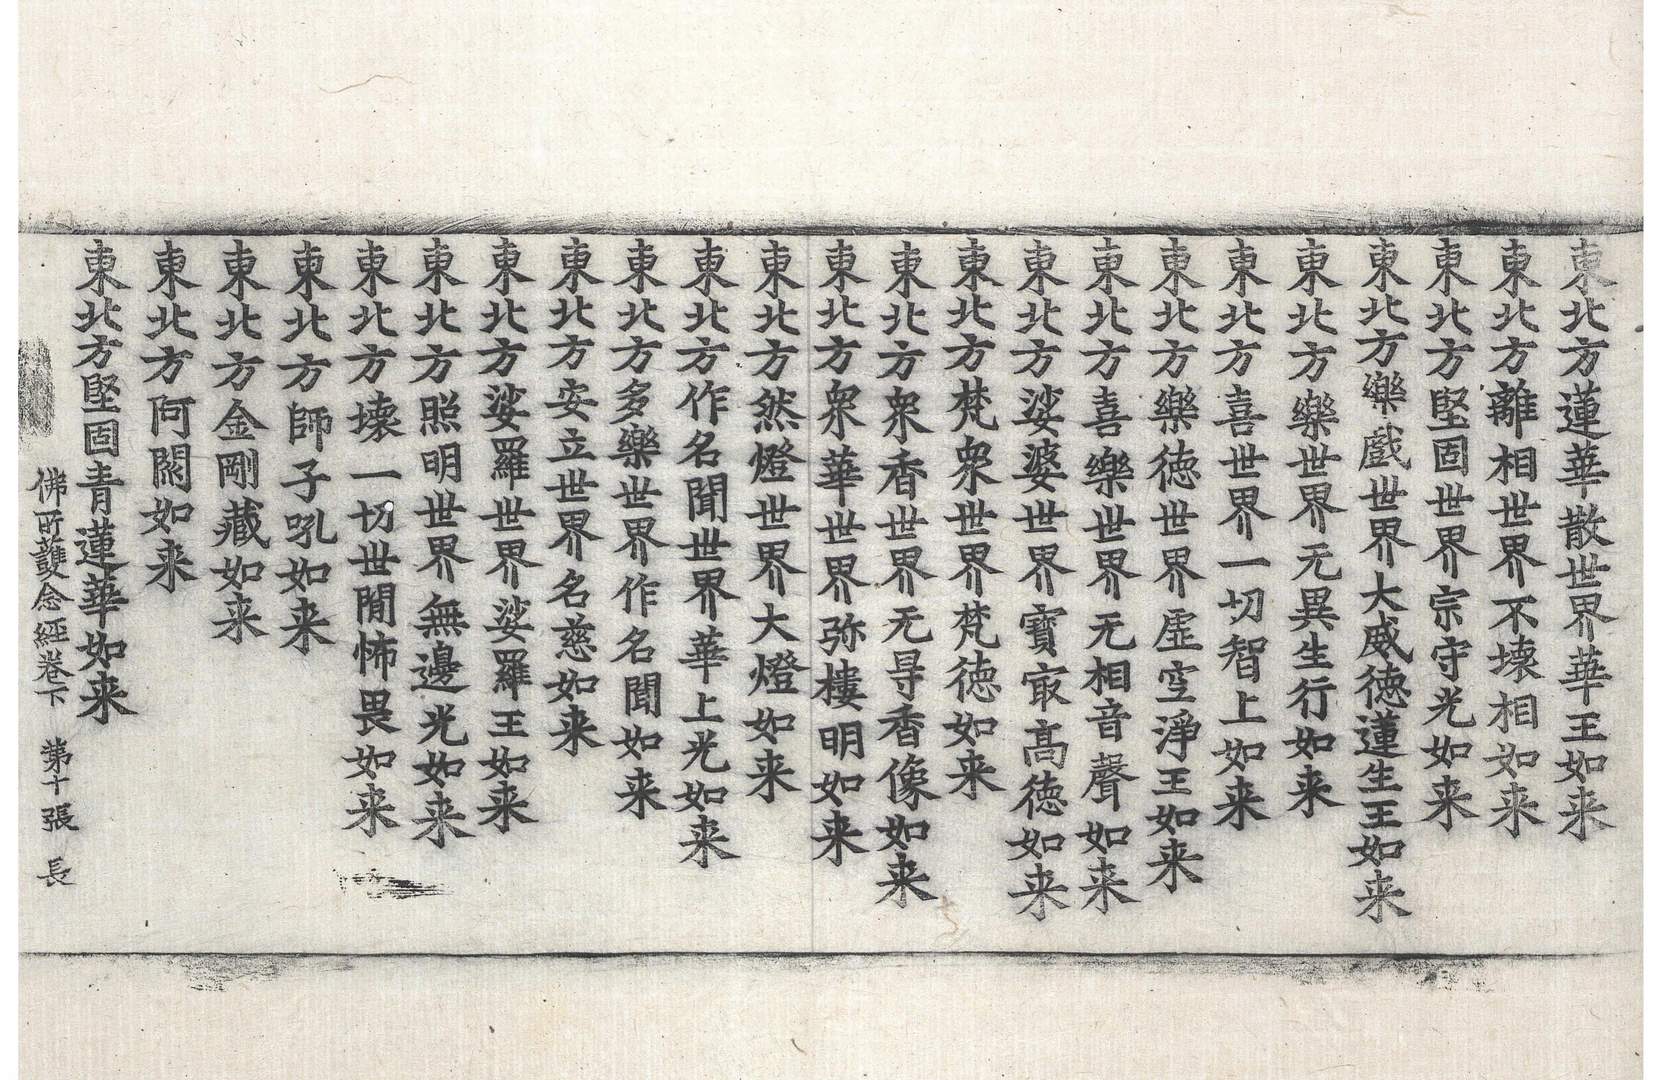 東北方蓮華散世界華王如来
東北方離相世界不壊相如来
東北方堅固世界宗守光如来
東北方樂戲世界大威徳蓮生王如来
東北方樂世界无異生行如来
東北方喜世界一切智上如来
東北方樂徳世界虛空淨王如来
東北方喜樂世界无相音聲如来
東北方娑婆世界寶㝡髙徳如来
東北方梵衆世界梵徳如来
東北方衆香世界无㝵香像如来
東北方衆華世界弥樓明如来
東北方然燈世界大燈如来
東北方作名聞世界華上光如来
東北方多樂世界作名聞如来
東北方安立世界名慈如来
東北方娑羅世界娑羅王如来
東北方照明世界無邊光如来
東北方壊一切世閒怖畏如来
東北方師子吼如来
東北方金剛藏如来
東北方阿閦如来
東北方堅固青蓮華如来
佛所護念經卷下 第十張 長